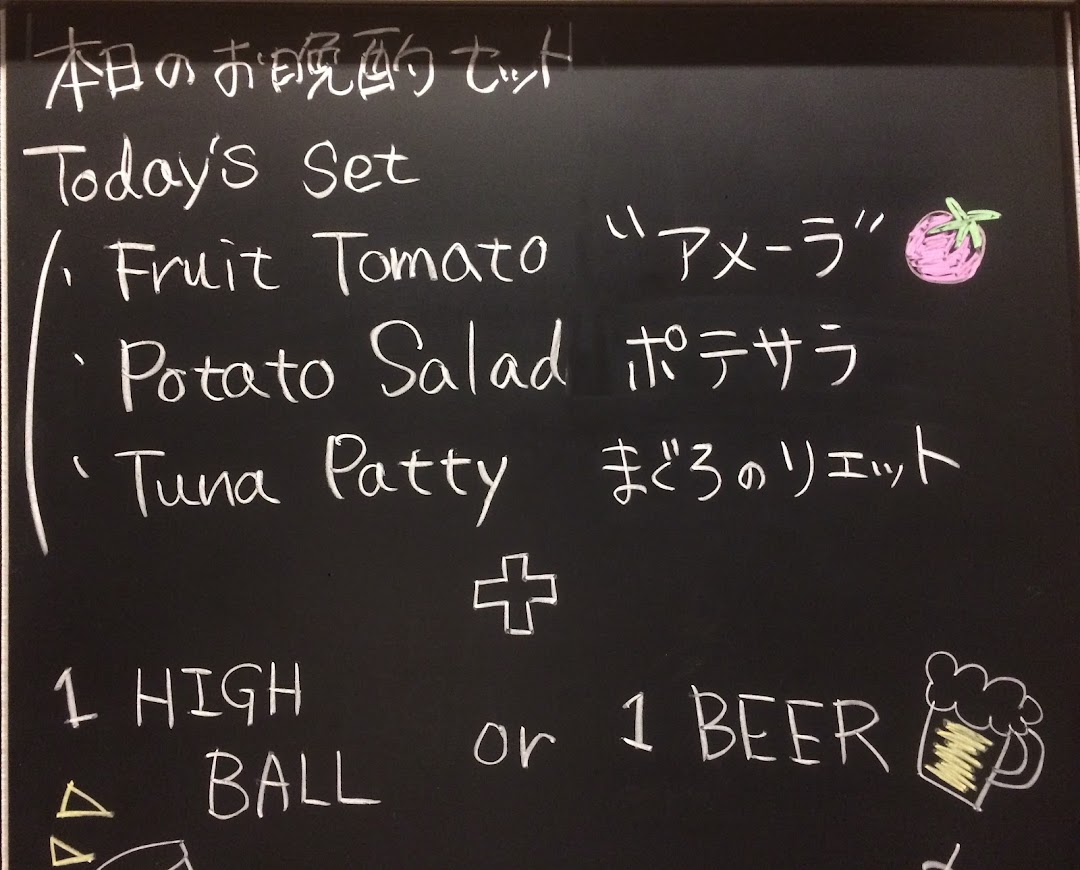 本日のお晩酌セット
Today's Set
・Fruit Tomato "アメーラ"
・Potato Salad ポテサラ
・Tuna Patty まぐろのリエット
+
1 HIGH BALL or 1 BEER